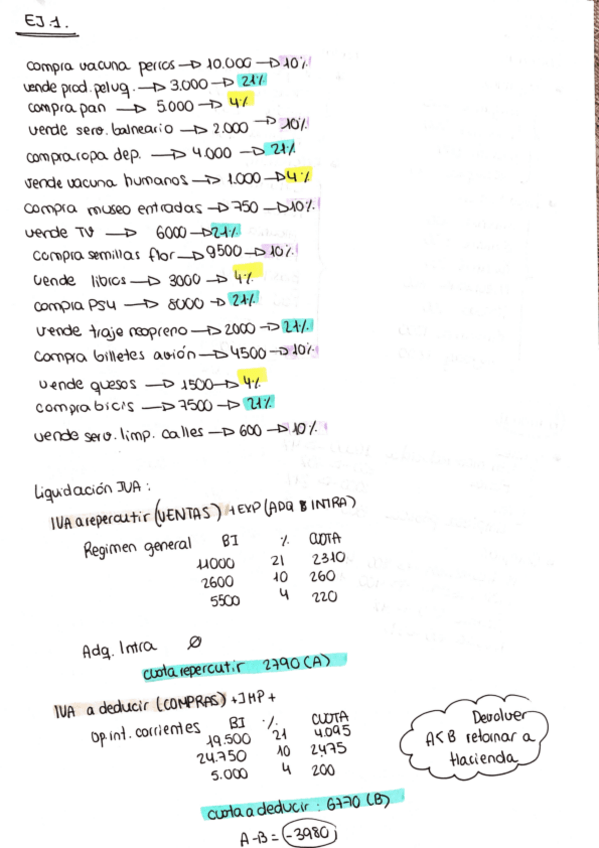 EJ.1.
compra vacuna perros → 10.000 → 10%
vende prod. pelug. → 3.000 → 21%
compra pan → 5.000 → 4%
vende serv. balneario → 2.000 → 10%
compra ropa dep. → 4.000 → 21%
vende vacuna humanos → 1.000 → 4%
compra museo entradas → 750 → 10%
vende TV → 6000 → 21%
compra semillas flor → 9500 → 10%
vende libros → 3000 → 4%
compra PS4 → 8000 → 21%
vende traje neopreno → 2000 → 21%
compra billetes avión → 4500 → 10%
vende quesos → 1500 → 4%
compra bicis → 7500 → 21%
vende serv. limp. calles → 600 → 10%
Liquidación IVA:
IVA a repercutir (VENTAS) + EXP (ADQ INTRA)
Regimen general BI % CUOTA
11000 21 2310
2600 10 260
5500 4 220
Adq. Intra Ø
cuota repercutir 2790 (A)
IVA a deducir (COMPRAS) + IMP +
Op int. corrientes BI % CUOTA
19.500 21 4.095
24.750 10 2475
5.000 4 200
Devolver
A<B retornar a
Hacienda
cuota a deducir: 6770 (B)
A-B = -3980